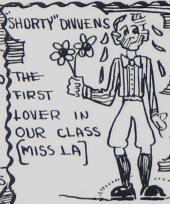 "SHORTY" DIVVENS
THE
FIRST
LOVER IN
OUR CLASS
[MISS LA]